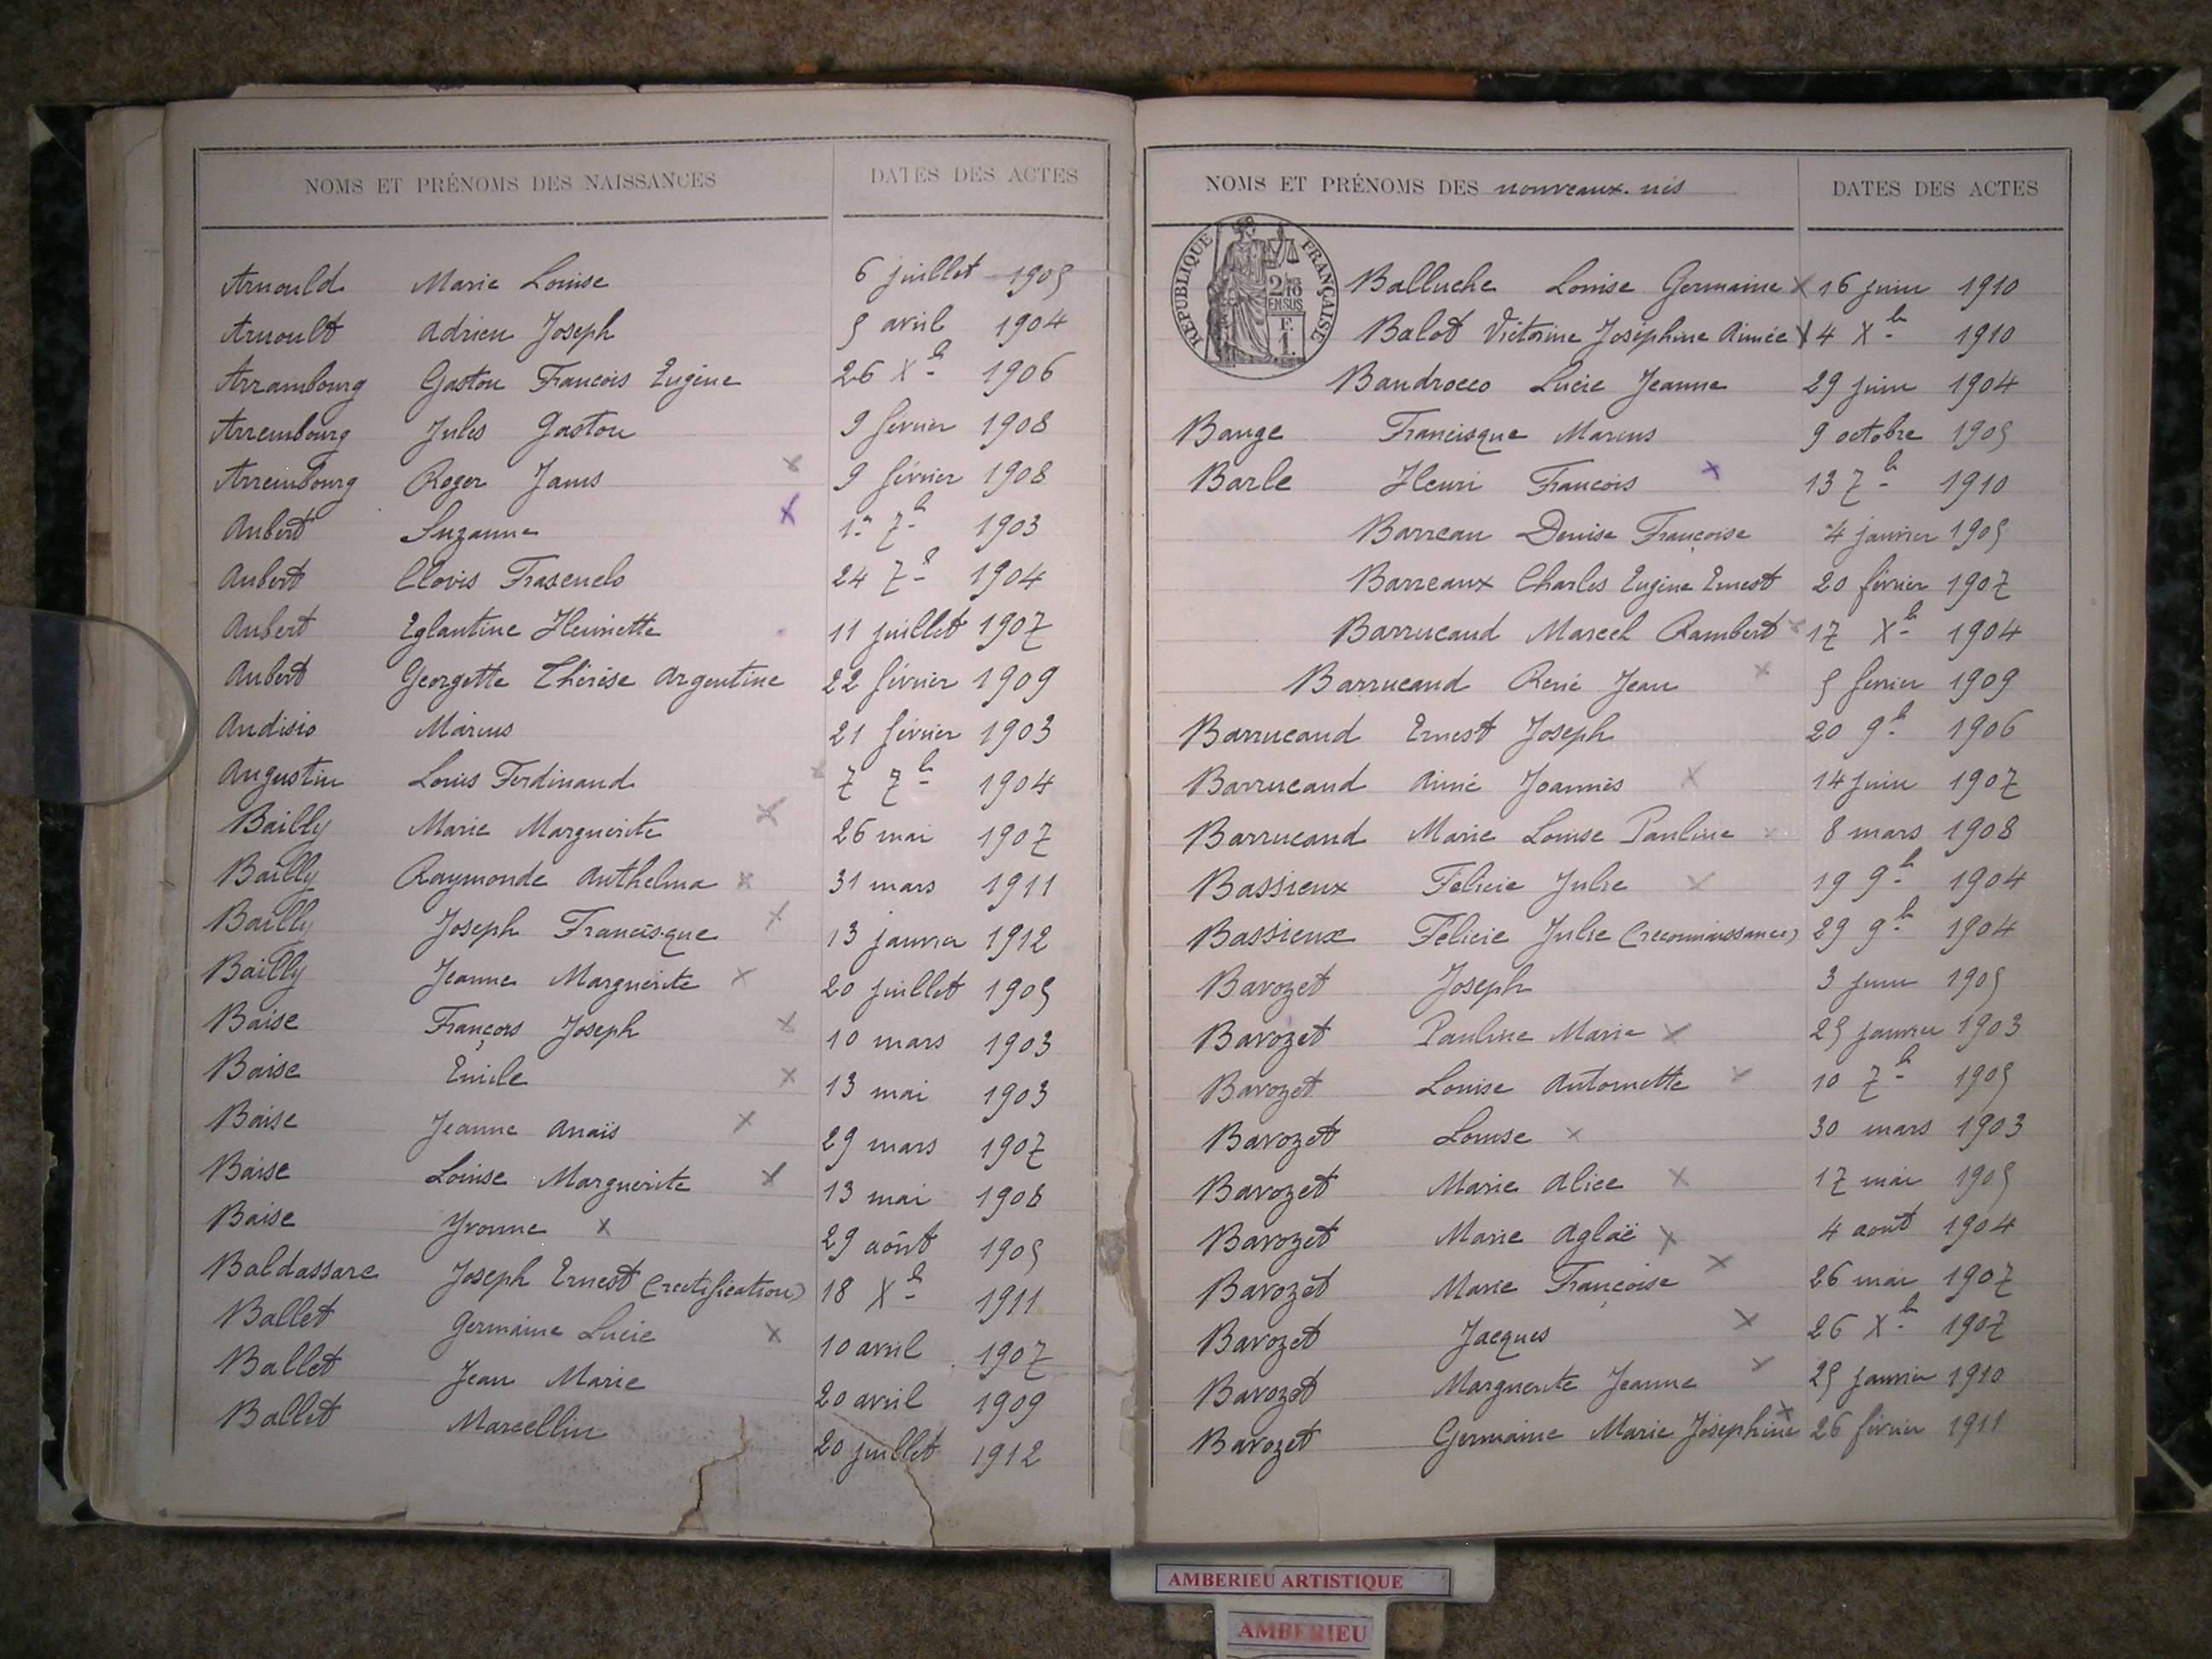 NOMS ET PRÉNOMS DES NAISSANCES DATES DES ACTES
Arnould Marie Louise 6 juillet 1905
Arnoult Adrien Joseph 5 avril 1904
Arrambourg Gaston Francois Eugène 26 Xb 1906
Arrembourg Jules Gaston 9 février 1908
Arrembourg Roger James x 9 février 1908
Aubert Suzanne x 1er 7b 1903
Aubert Clovis 24 7b 1904
Aubert Eglantine Henriette 11 juillet 1907
Aubert Georgette Thérèse Argentine 22 février 1909
Audisio Marius 21 février 1903
Augustin Louis Ferdinand x 7 7b 1904
Bailly Marie Marguerite x 26 mai 1907
Bailly Raymonde Anthelma x 31 mars 1911
Bailly Joseph Francisque x 13 janvier 1912
Bailly Jeanne Marguerite x 20 juillet 1905
Baise François Joseph x 10 mars 1903
Baise Emile x 13 mai 1903
Baise Jeanne Anaïs x 29 mars 1907
Baise Louise Marguerite x 13 mai 1908
Baise Yvonne x 29 août 1905
Baldassare Joseph Ernest (rectification) 18 Xb 1911
Ballet Germaine Lucie x 10 avril 1907
Ballet Jean Marie 20 avril 1909
Ballet Marcellin 20 juillet 1912
NOMS ET PRÉNOMS DES nouveaux-nés DATES DES ACTES
RÉPUBLIQUE FRANÇAISE
2/10 EN SUS
F. 1.
Balluche Louise Germaine x 16 juin 1910
Balot Victorine Joséphine Aimée x 4 Xb 1910
Bandrocco Lucie Jeanne 29 juin 1904
Bange Francisque Marius 9 octobre 1905
Barle Henri Francois x 13 7b 1910
Barreau Denise Françoise 4 janvier 1905
Barreaux Charles Eugène Ernest 20 février 1907
Barrucand Marcel Rambert x 17 Xb 1904
Barrucand René Jean x 5 février 1909
Barrucand Ernest Joseph 20 9b 1906
Barrucand Aimé Joannès x 14 juin 1907
Barrucand Marie Louise Pauline x 8 mars 1908
Bassieux Félicie Julie x 19 9b 1904
Bassieux Félicie Julie (reconnaissance) 29 9b 1904
Bavozet Joseph 3 juin 1905
Bavozet Pauline Marie x 25 janvier 1903
Bavozet Louise Antoinette x 10 7b 1905
Bavozet Louise x 30 mars 1903
Bavozet Marie Alice x 17 mai 1905
Bavozet Marie Aglaë x 4 août 1904
Bavozet Marie Françoise x 26 mai 1907
Bavozet Jacques x 26 Xb 1907
Bavozet Marguerite Jeanne x 25 janvier 1910
Bavozet Germaine Marie Joséphine x 26 février 1911
AMBERIEU ARTISTIQUE
AMBERIEU